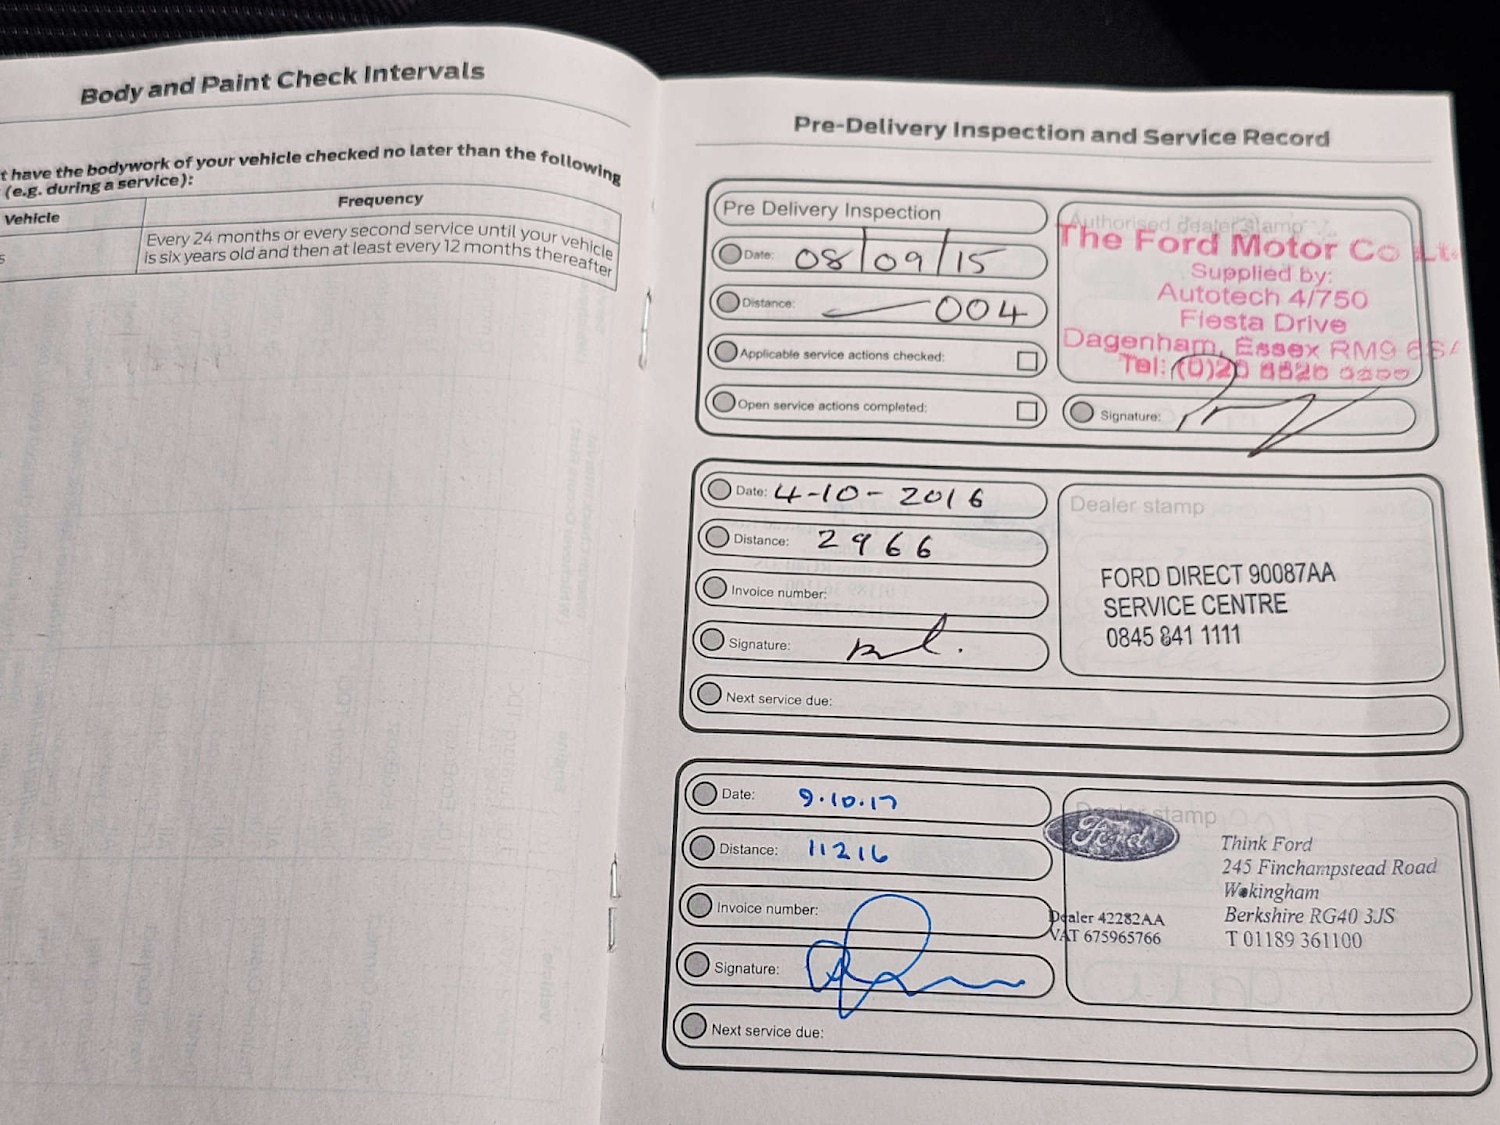 Body and Paint Check Intervals
t have the bodywork of your vehicle checked no later than the following
(e.g. during a service):
Vehicle
Frequency
s
Every 24 months or every second service until your vehicle
is six years old and then at least every 12 months thereafter
Pre-Delivery Inspection and Service Record
Pre Delivery Inspection
Date: 08/09/15
Distance: 004
Applicable service actions checked:
Open service actions completed:
Authorised dealer stamp
The Ford Motor Co Lt
Supplied by:
Autotech 4/750
Fiesta Drive
Dagenham, Essex RM9 6SA
Tel: (0)20
Signature:
Date: 4-10-2016
Distance: 2966
Invoice number:
Signature:
Next service due:
Dealer stamp
FORD DIRECT 90087AA
SERVICE CENTRE
0845 841 1111
Date: 9.10.17
Distance: 11216
Invoice number:
Signature:
Next service due:
Dealer stamp
Ford
Dealer 42282AA
VAT 675965766
Think Ford
245 Finchampstead Road
Wokingham
Berkshire RG40 3JS
T 01189 361100